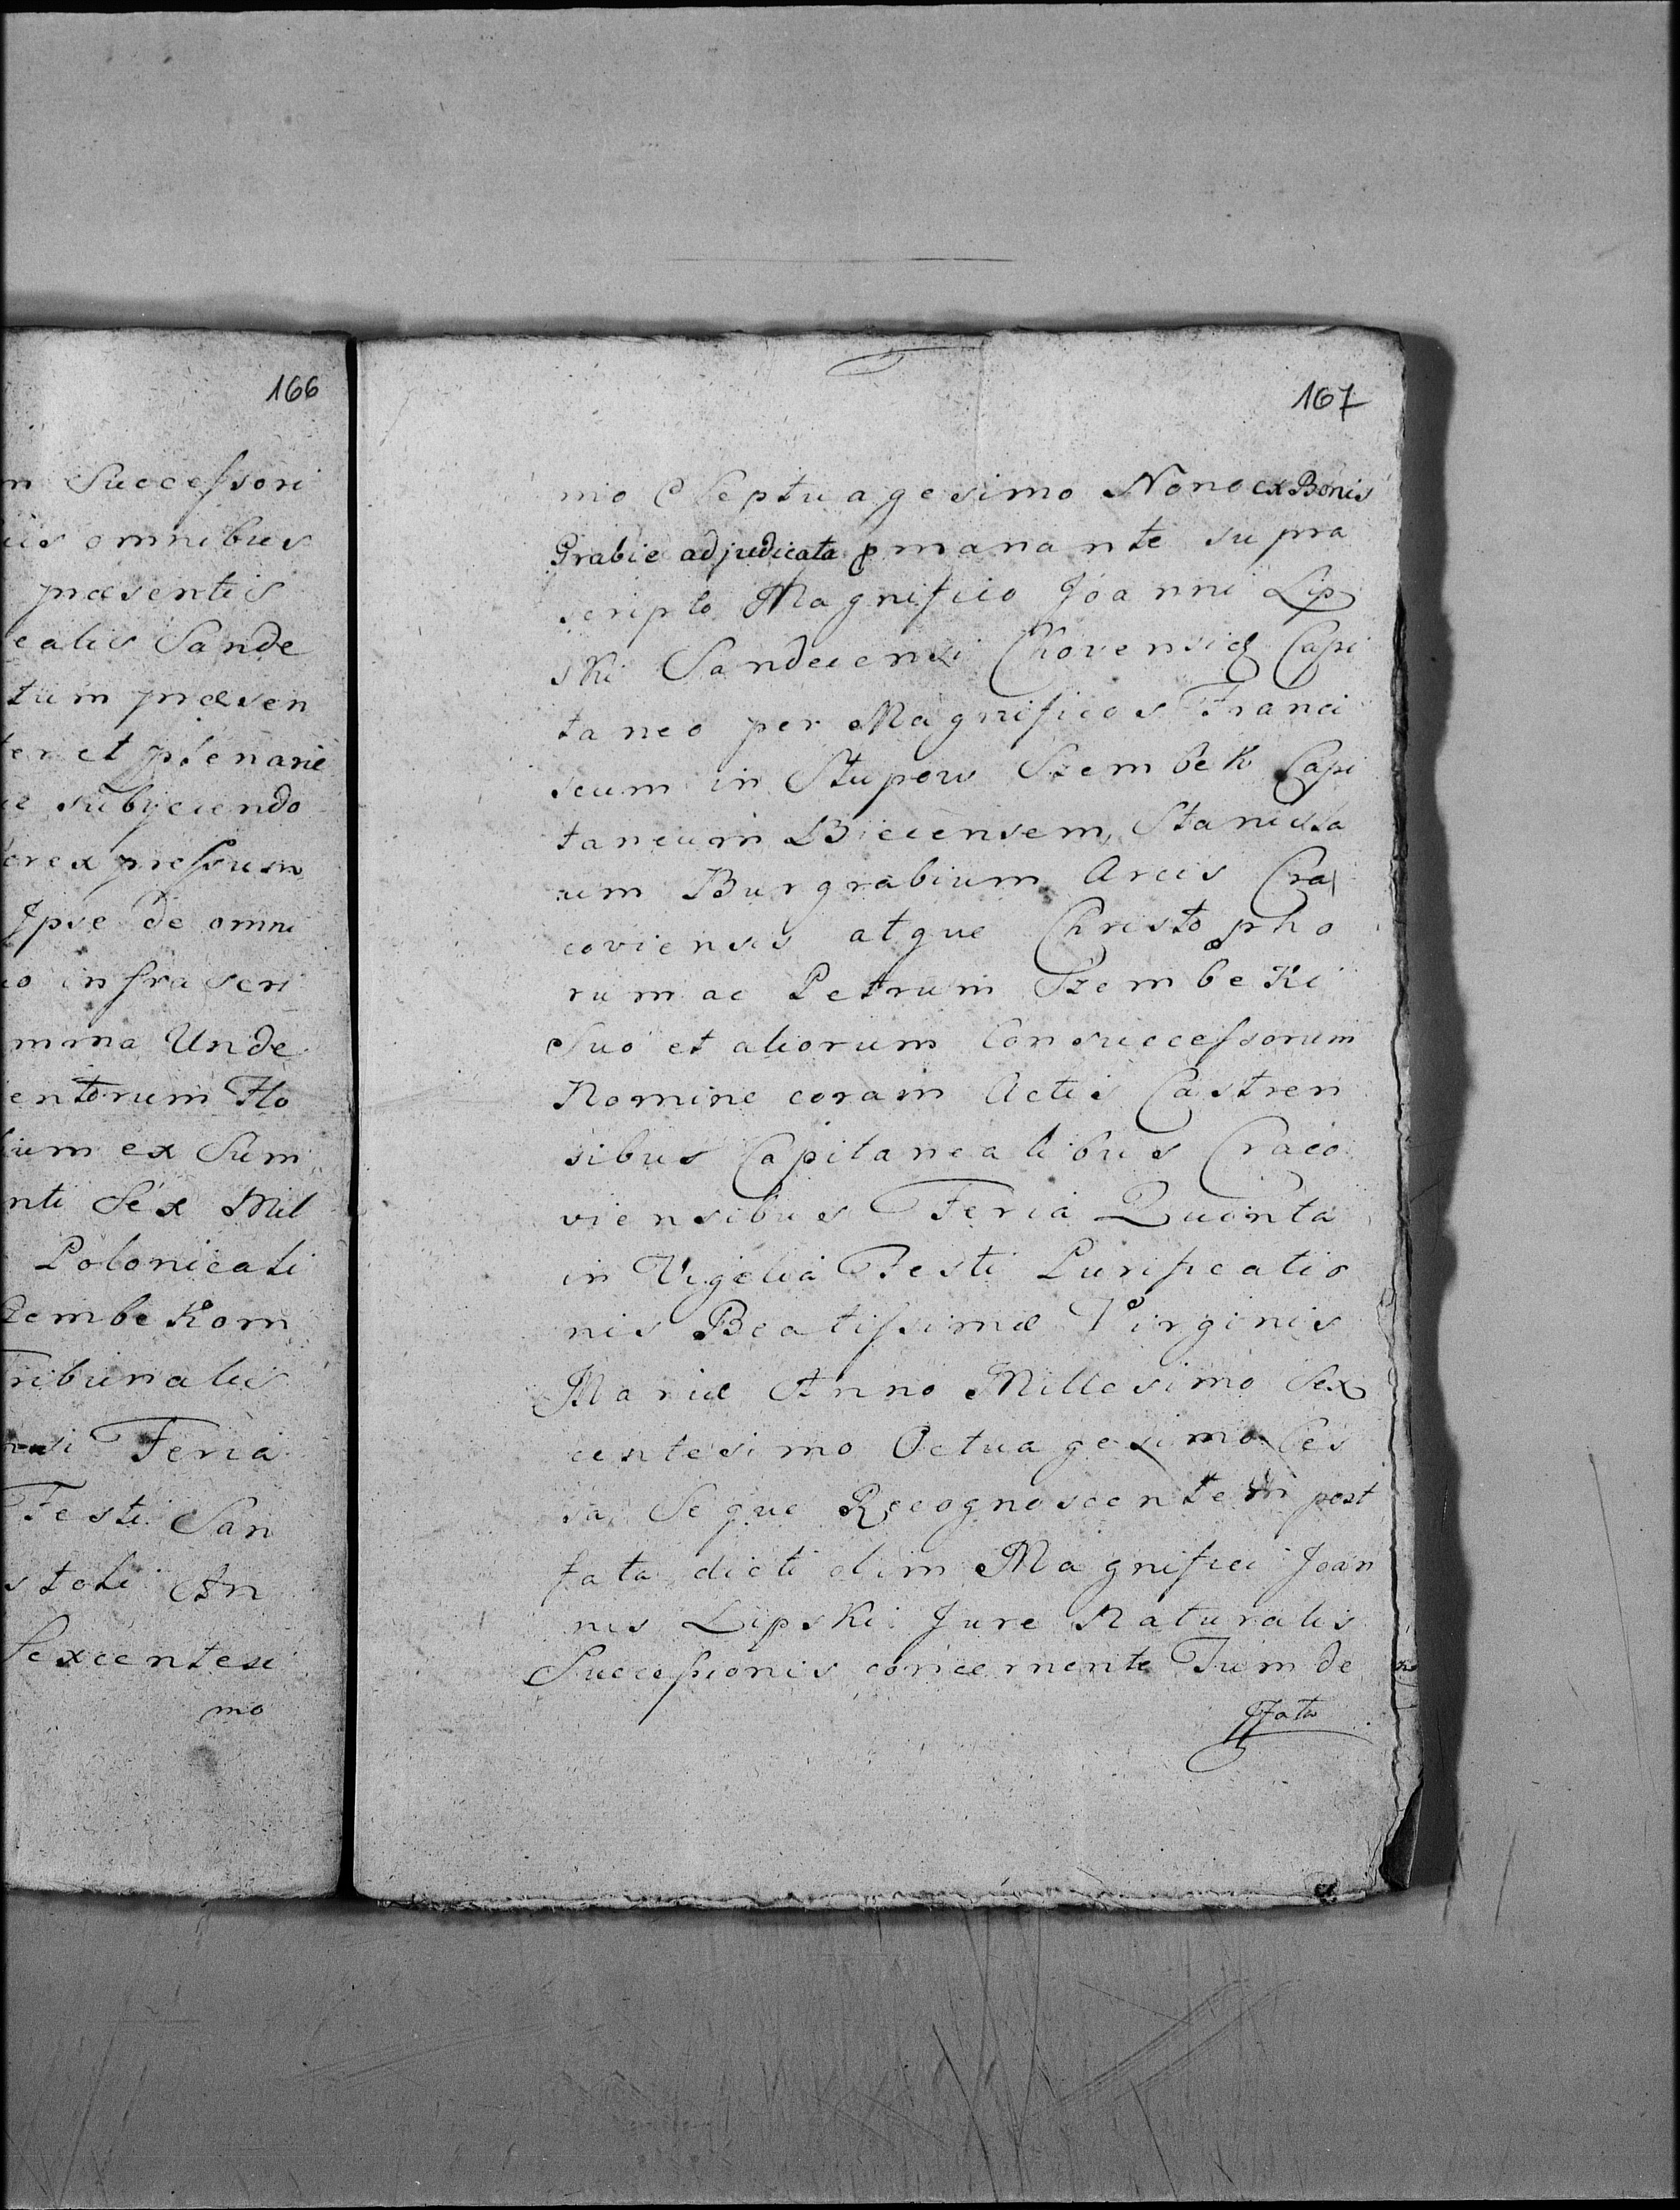 166
n Successori
iis omnibus
præsentis
ealis Sande
tum præsen
ter et plenarie
subyciendo
expressum
Ipse de omni
io infrascri
mma Unde
entorum Flo
ium ex Sum
nti Sex Mil
Polonicali
zembekom
Tribunalis
nsi Feria
Festi San
stoli An
Sexcentesi
mo
167
mo Septuagesimo Nono ex Bonis
Grabie adjudicata emanante supra
scripto Magnifico Joanni Lip
ski Sandecensi Chovensiq Capi
taneo per Magnificos Franci
scum in Słupow Szembek Capi
taneum Biecensem, Stanisla
um Burgrabium Arcis Cra
coviensis atque Christopho
rum ac Petrum Szembeki
Suo et aliorum Consuccessorum
Nomine coram Actis Castren
sibus Capitanealibus Craco
viensibus Feria Quinta
in Vigilia Festi Purificatio
nis Beatissimæ Virginis
Mariæ Anno Millesimo Sex
centesimo Octuagesimo Ces
sa Seque Recognoscentem post
fata dicti olim Magnifici Joan
nis Lipski Jure Naturalis
Successionis concernente Tum de